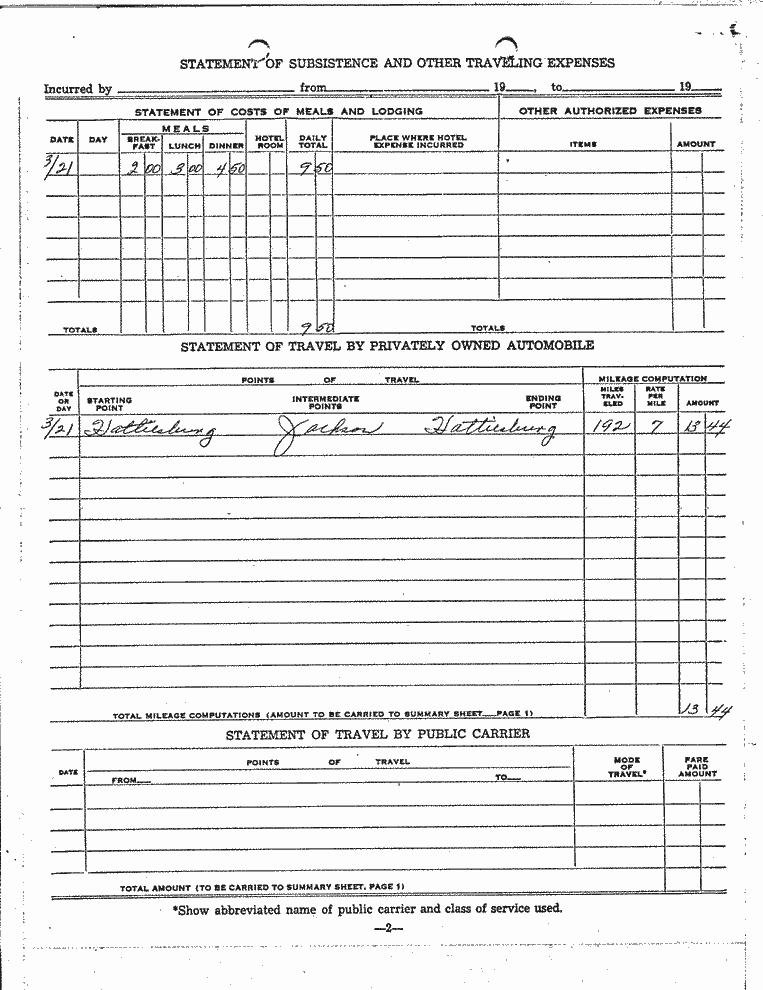 STATEMENT OF SUBSISTENCE AND OTHER TRAVELING EXPENSES
Incurred by from 19 , to 19
STATEMENT OF COSTS OF MEALS AND LODGING OTHER AUTHORIZED EXPENSES
DATE DAY MEALS HOTEL ROOM DAILY TOTAL PLACE WHERE HOTEL EXPENSE INCURRED ITEMS AMOUNT
BREAK-FAST LUNCH DINNER
3/21 2 00 3 00 4 50 9 50
TOTALS 9 50 TOTALS
STATEMENT OF TRAVEL BY PRIVATELY OWNED AUTOMOBILE
POINTS OF TRAVEL MILEAGE COMPUTATION
DATE OR DAY STARTING POINT INTERMEDIATE POINTS ENDING POINT MILES TRAV-ELED RATE PER MILE AMOUNT
3/21 Hattiesburg Jackson Hattiesburg 192 7 13 44
TOTAL MILEAGE COMPUTATIONS (AMOUNT TO BE CARRIED TO SUMMARY SHEET—PAGE 1) 13 44
STATEMENT OF TRAVEL BY PUBLIC CARRIER
DATE POINTS OF TRAVEL MODE OF TRAVEL* FARE PAID AMOUNT
FROM— TO—
TOTAL AMOUNT (TO BE CARRIED TO SUMMARY SHEET, PAGE 1)
*Show abbreviated name of public carrier and class of service used.
—2—